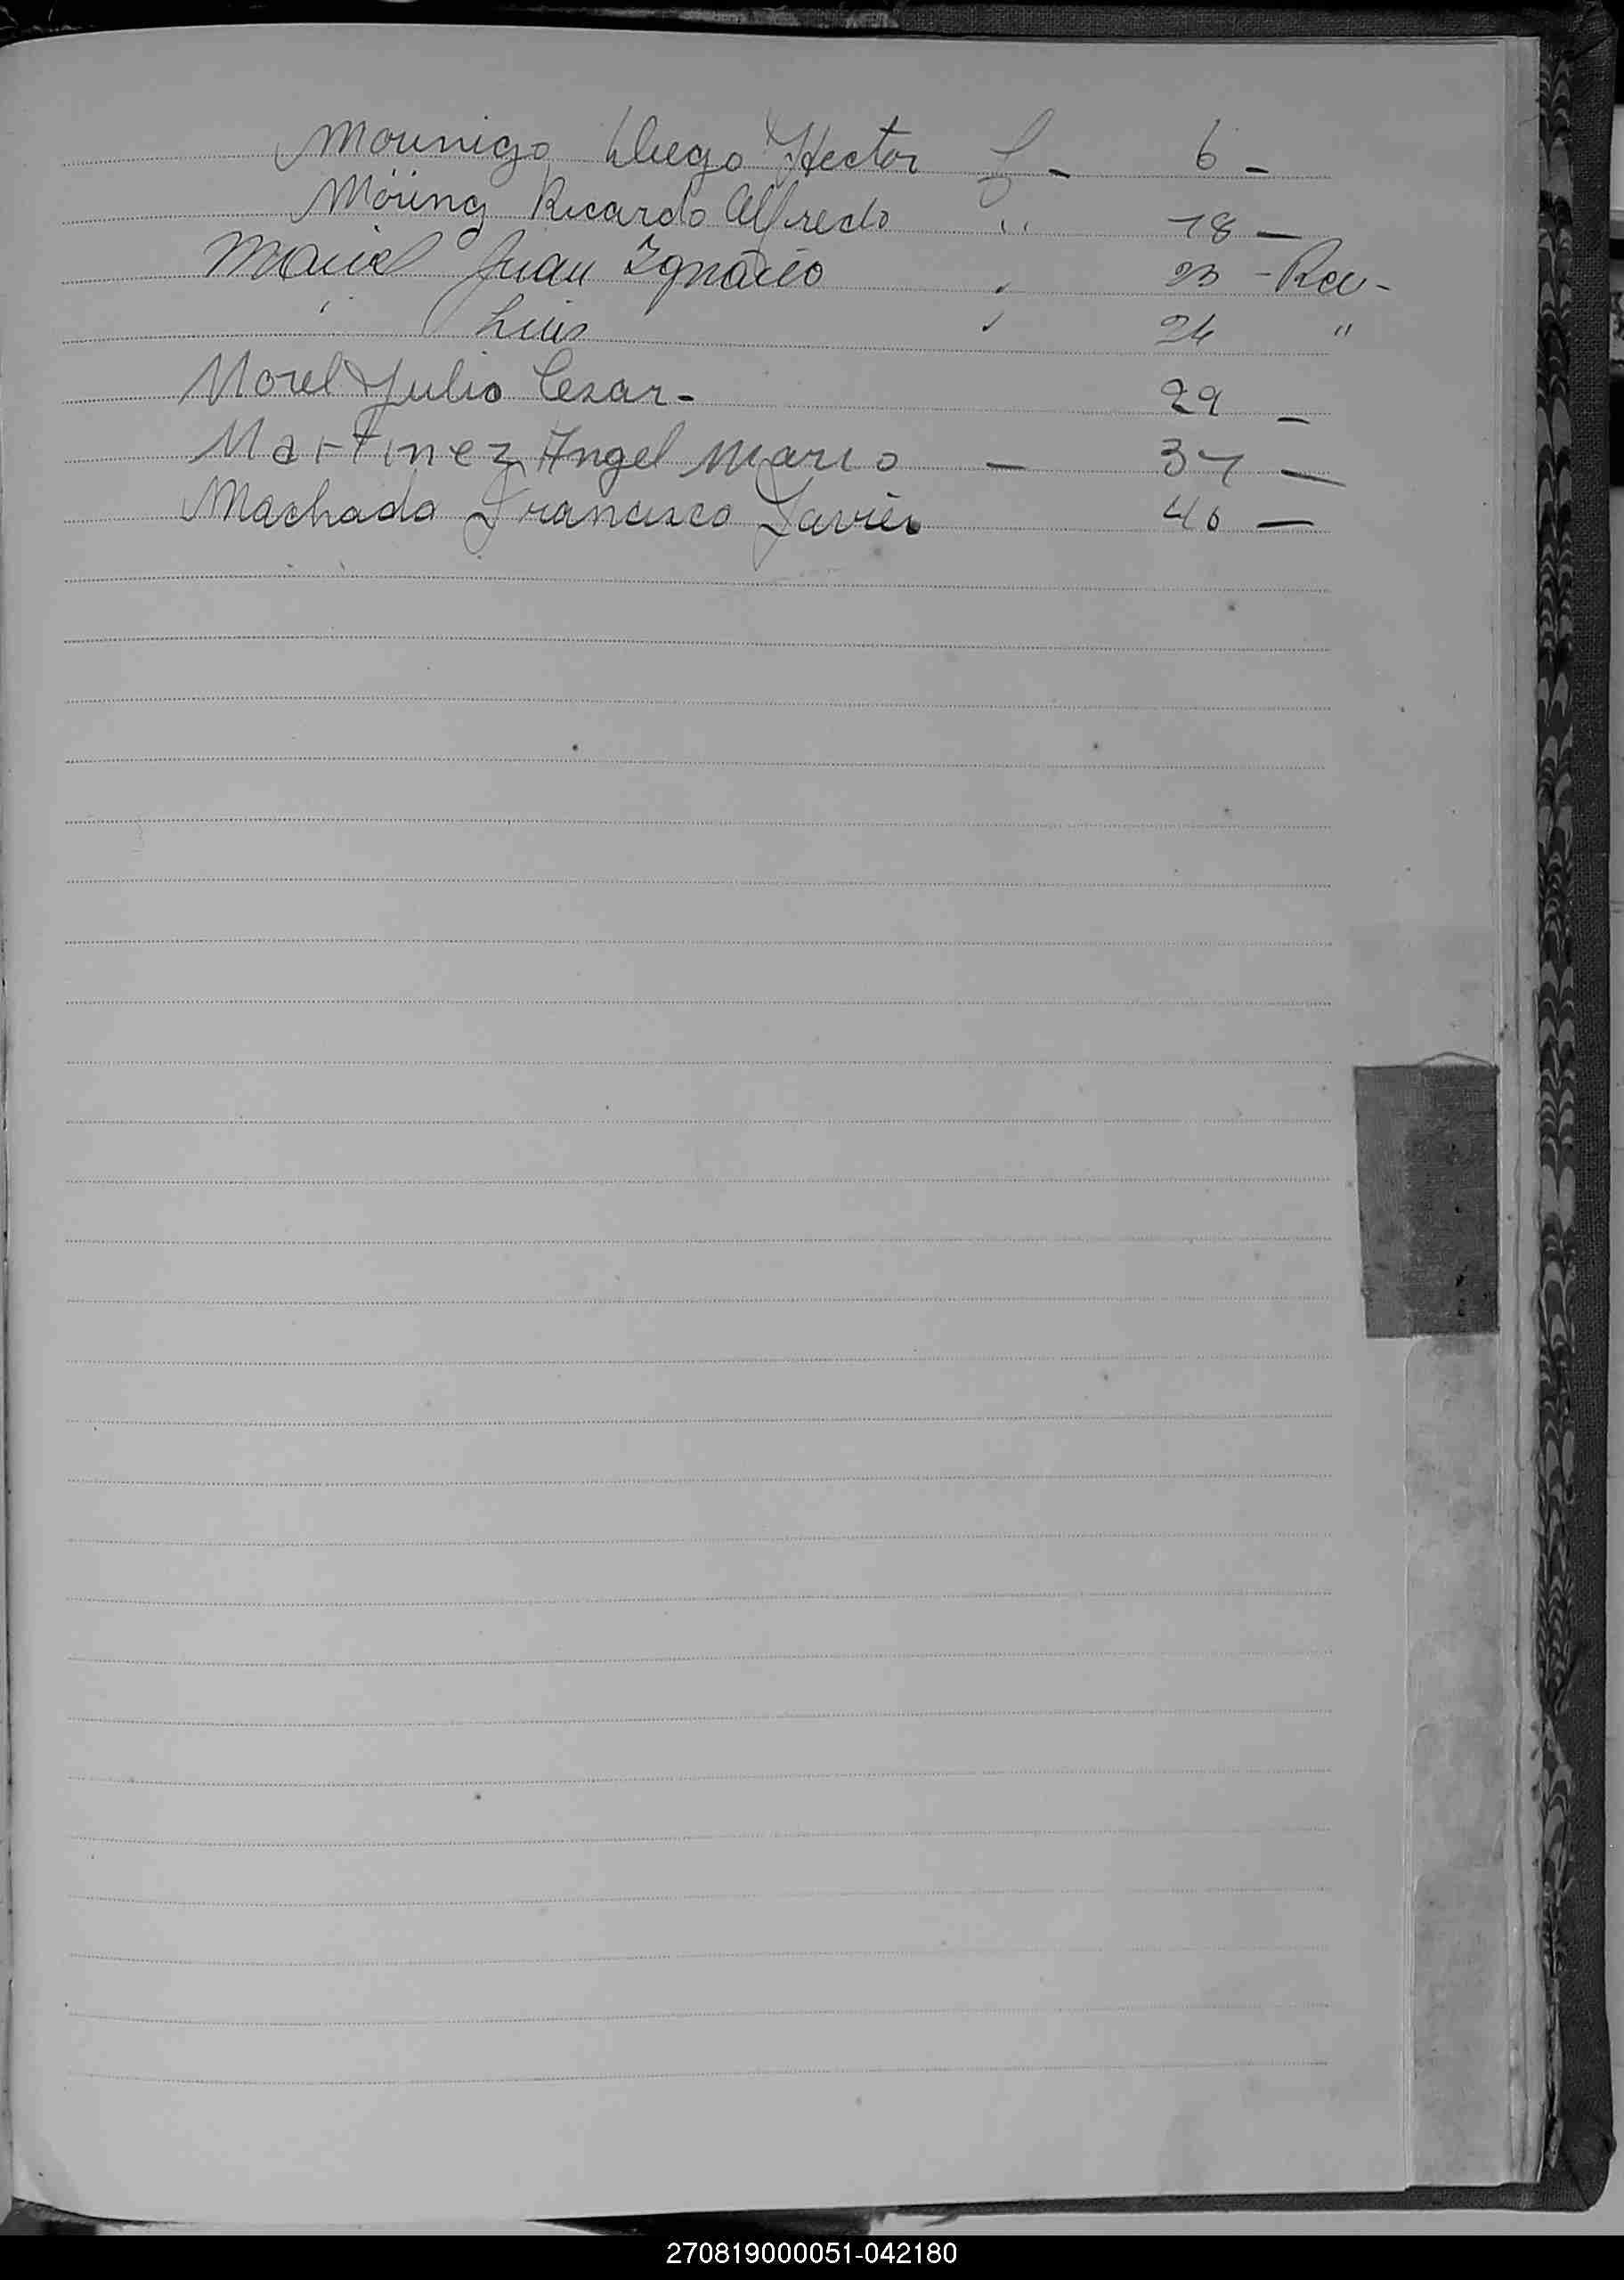 Mounigo Diego Hector F - 6 -
Möring Ricardo Alfredo " 18 -
Maciel Juan Ignacio " 23 - Rec -
" Luis " 24 "
Morel Julio Cesar - 29 -
Martinez Angel Mario - 37 -
Machado Francisco Javier 46 -
270819000051-042180